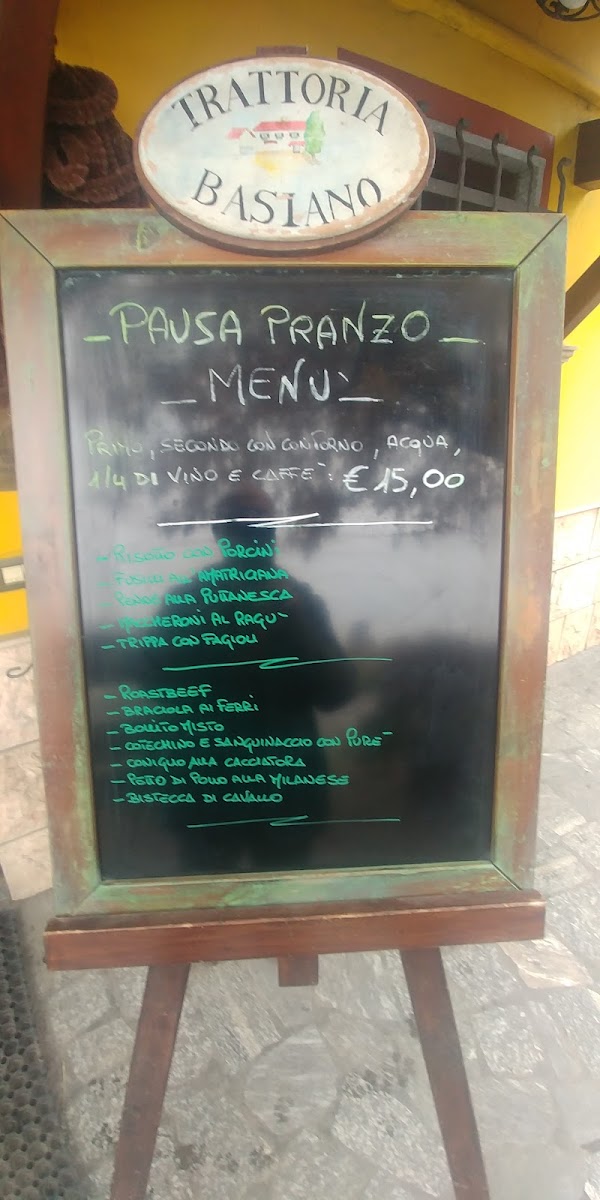 TRATTORIA
BASIANO
- PAUSA PRANZO -
- MENU' -
PRIMO, SECONDO CON CONTORNO, ACQUA,
1/4 DI VINO E CAFFE': € 15,00
- RISOTTO CON PORCINI
- FUSILLI ALL'AMATRICIANA
- PENNE ALLA PUTTANESCA
- MACCHERONI AL RAGU'
- TRIPPA CON FAGIOLI
- ROASTBEEF
- BRACIOLA AI FERRI
- BOLLITO MISTO
- COTECHINO E SANGUINACCIO CON PURE'
- CONIGLIO ALLA CACCIATORA
- PETTO DI POLLO ALLA MILANESE
- BISTECCA DI CAVALLO